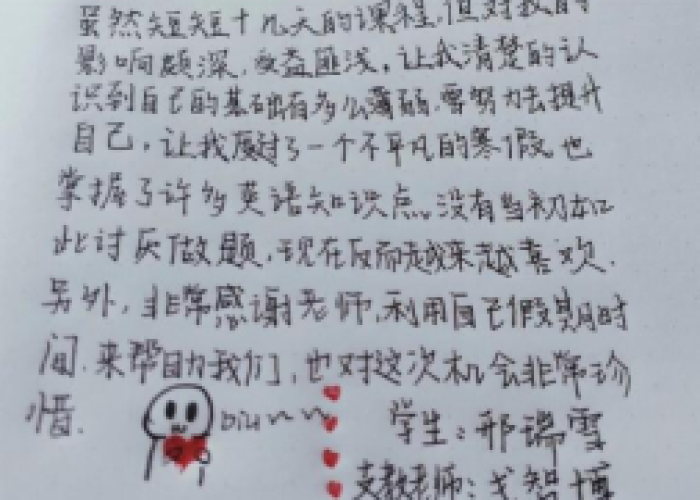 虽然短短十几天的课程,但对我的
影响颇深,收益匪浅,让我清楚的认
识到自己的基础有多么薄弱,要努力去提升
自己,让我度过了一个不平凡的寒假,也
掌握了许多英语知识点。没有当初如
此讨厌做题,现在反而越来越喜欢.
另外,非常感谢老师,利用自己假期时
间.来帮助我们,也对这次机会非常珍
惜.
biu~~
学生:邢瑞雪
支教老师:戈智博